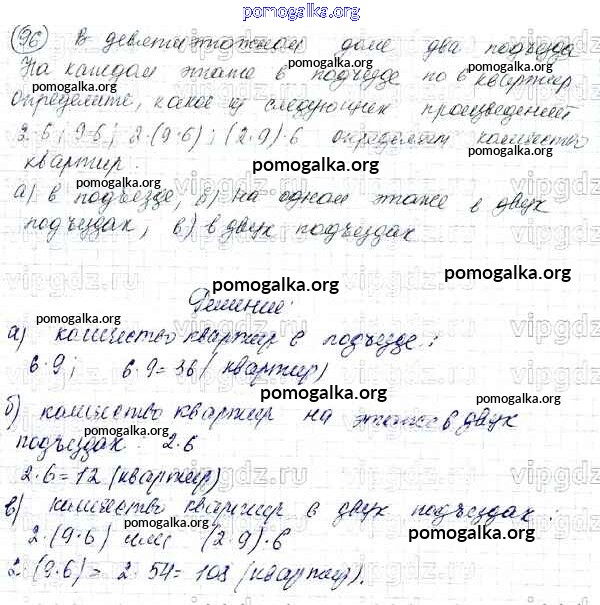 pomogalka.org
(96) В девятиэтажном доме два подъезда
На каждом этаже в подъезде по 6 квартир
Определите, какое из следующих произведений
2·6; 9·6; 2·(9·6); (2·9)·6 определит количество
квартир.
pomogalka.org
pomogalka.org
а) в подъезде, б) на одном этаже в двух
подъездах, в) в двух подъездах
pomogalka.org
pomogalka.org
Решение:
pomogalka.org
а) количество квартир в подъезде:
6·9; 6·9=36 (квартир)
pomogalka.org
pomogalka.org
б) количество квартир на этаже в двух
подъездах: 2·6
pomogalka.org
2·6=12 (квартир)
pomogalka.org
в) количество квартир в двух подъездах:
pomogalka.org
2·(9·6) или (2·9)·6
pomogalka.org
2·(9·6)= 2·54= 108 (квартир).